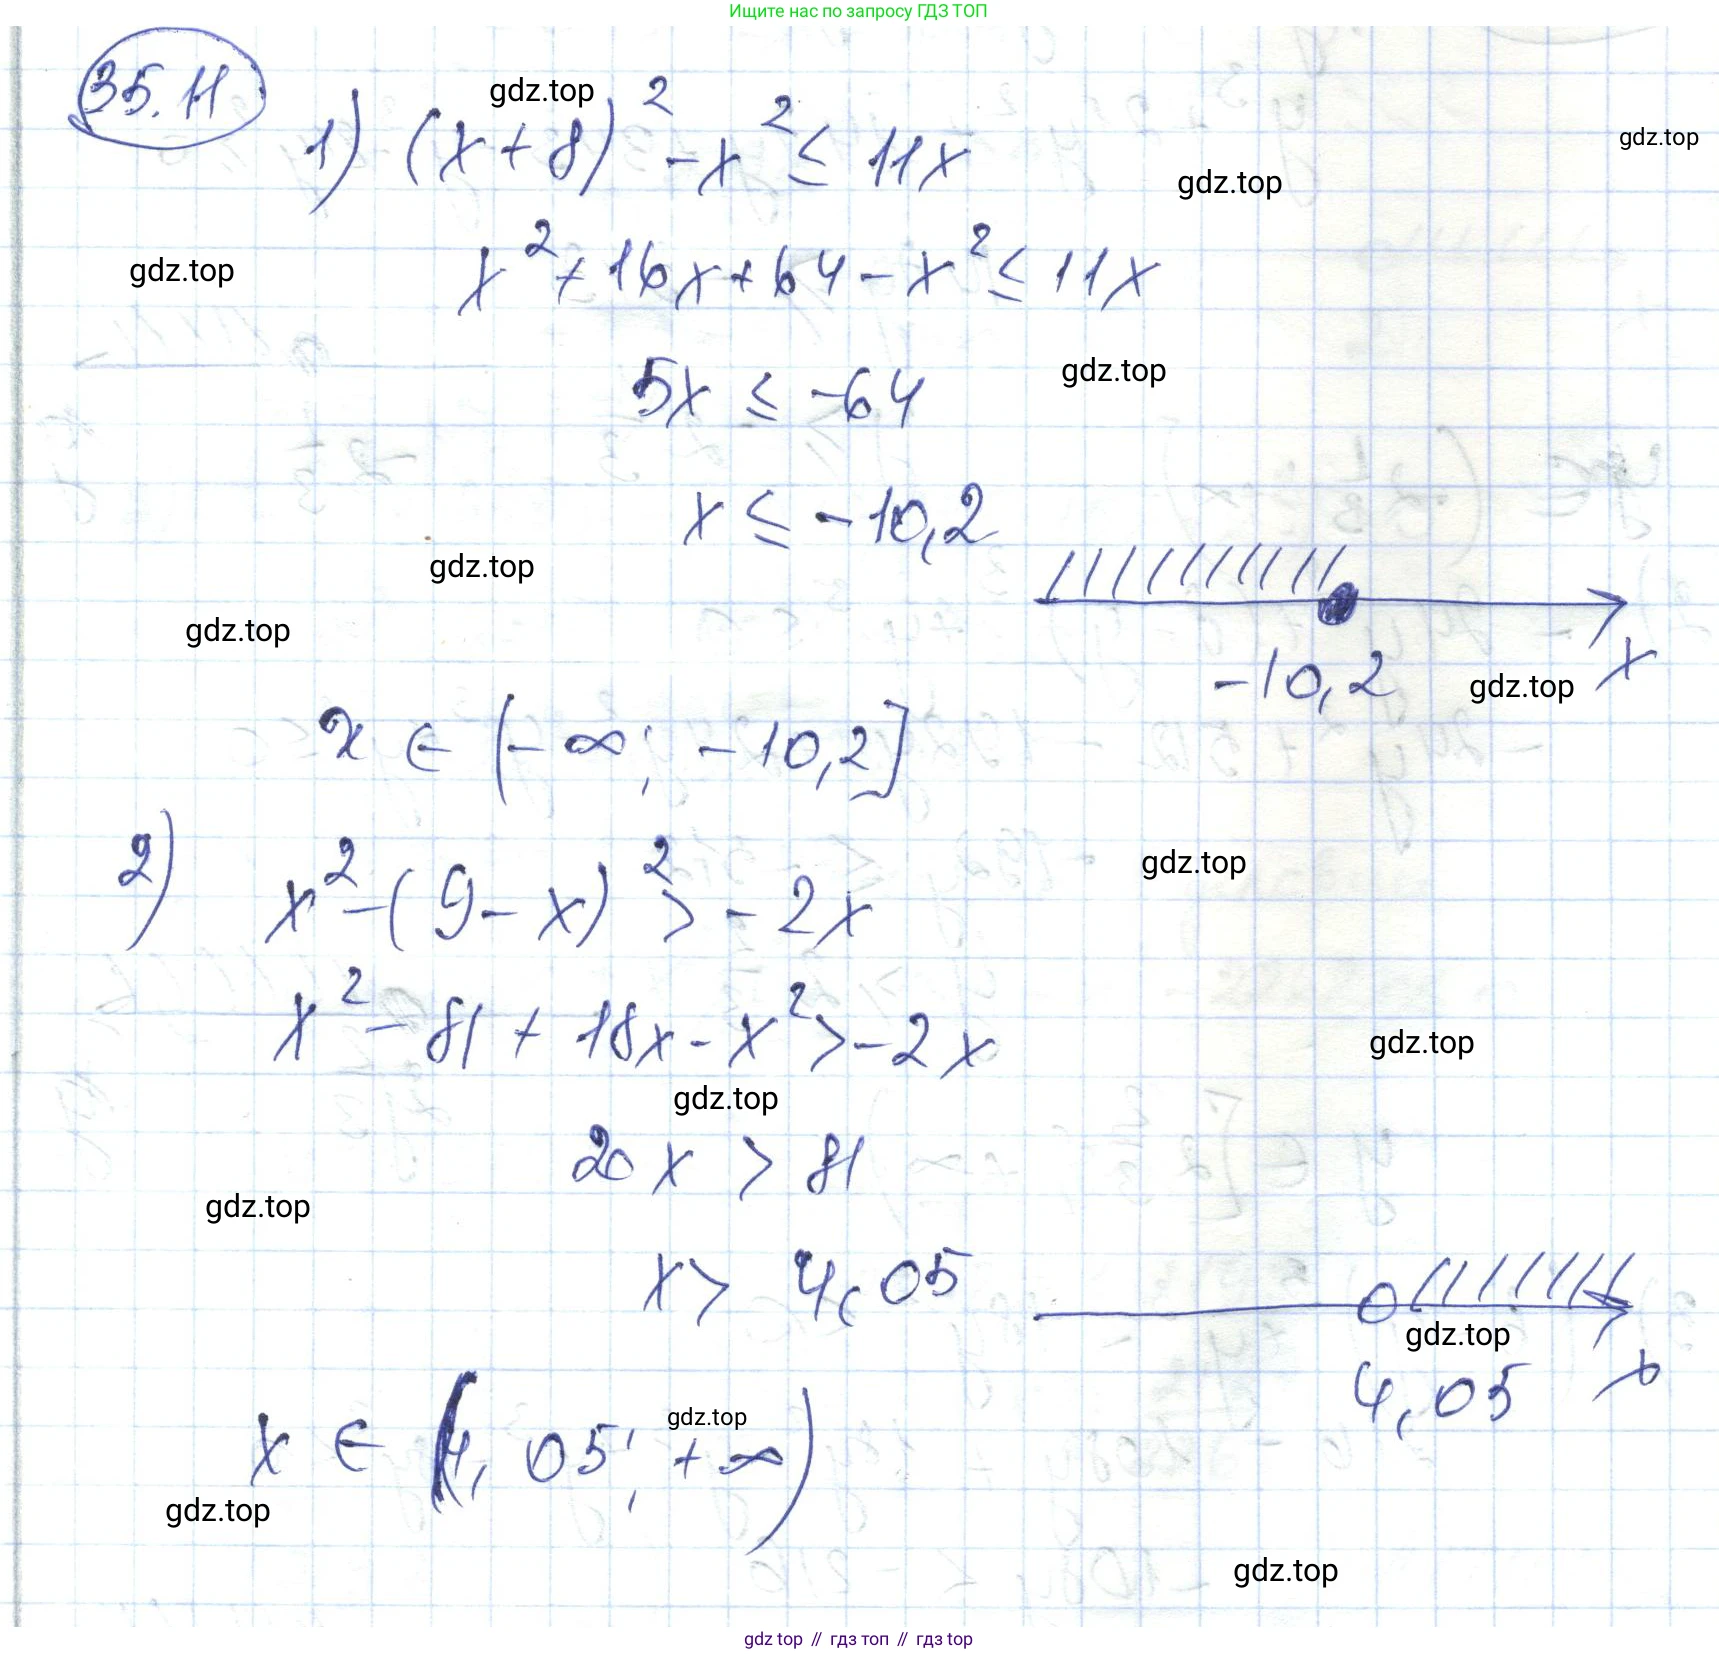 Ищите нас по запросу ГДЗ ТОП
35.11
gdz.top
1) (x + 8)² - x² ≤ 11x
gdz.top
gdz.top
x² + 16x + 64 - x² ≤ 11x
gdz.top
5x ≤ -64
gdz.top
x ≤ -10,2
gdz.top
gdz.top
-10,2
gdz.top
x
x ∈ (-∞; -10,2]
2) x² - (9 - x)² > -2x
gdz.top
x² - 81 + 18x - x² > -2x
gdz.top
gdz.top
20x > 81
gdz.top
x > 4,05
gdz.top
4,05 x
x ∈ (4,05; +∞)
gdz.top
gdz.top
gdz.top
gdz top // гдз топ // гдз top